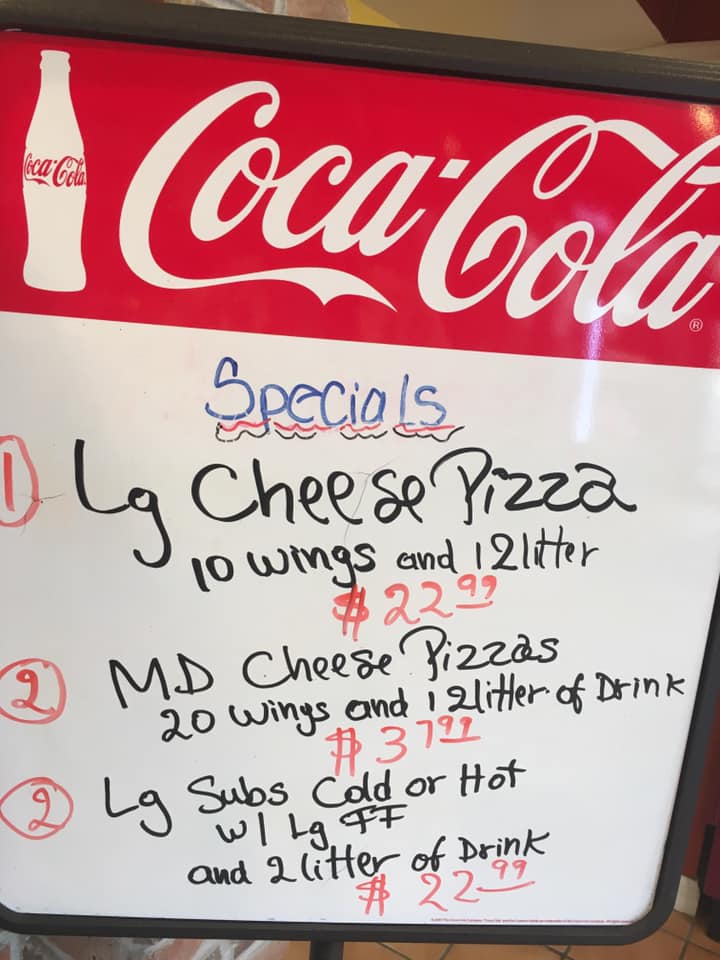 Coca-Cola
Coca-Cola®
Specials
1 Lg Cheese Pizza
10 wings and 1 2litter
$22.99
2 MD Cheese Pizzas
20 wings and 1 2litter of Drink
$37.99
2 Lg Subs Cold or Hot
w/ Lg FF
and 2 litter of Drink
$22.99